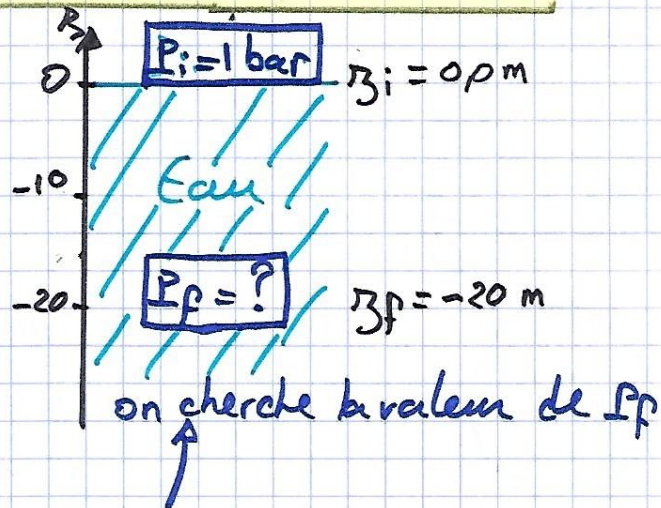 P_i = 1 bar
0
z_i = 0,0 m
-10
Eau
P_f = ?
-20
z_f = -20 m
on cherche la valeur de P_f